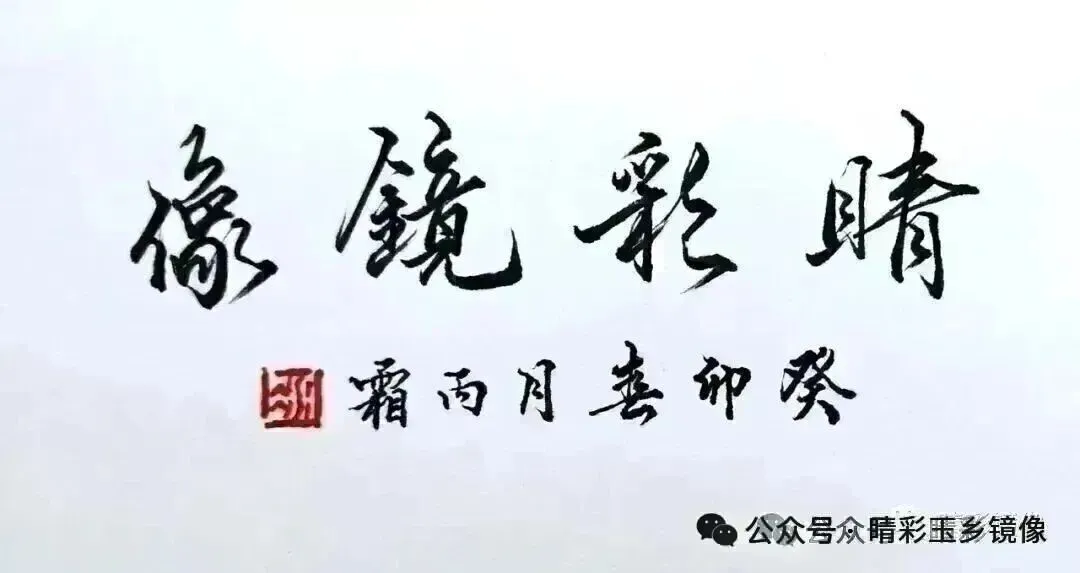 睛彩鏡像
癸卯春月丙霜
公众号众睛彩玉乡镜像